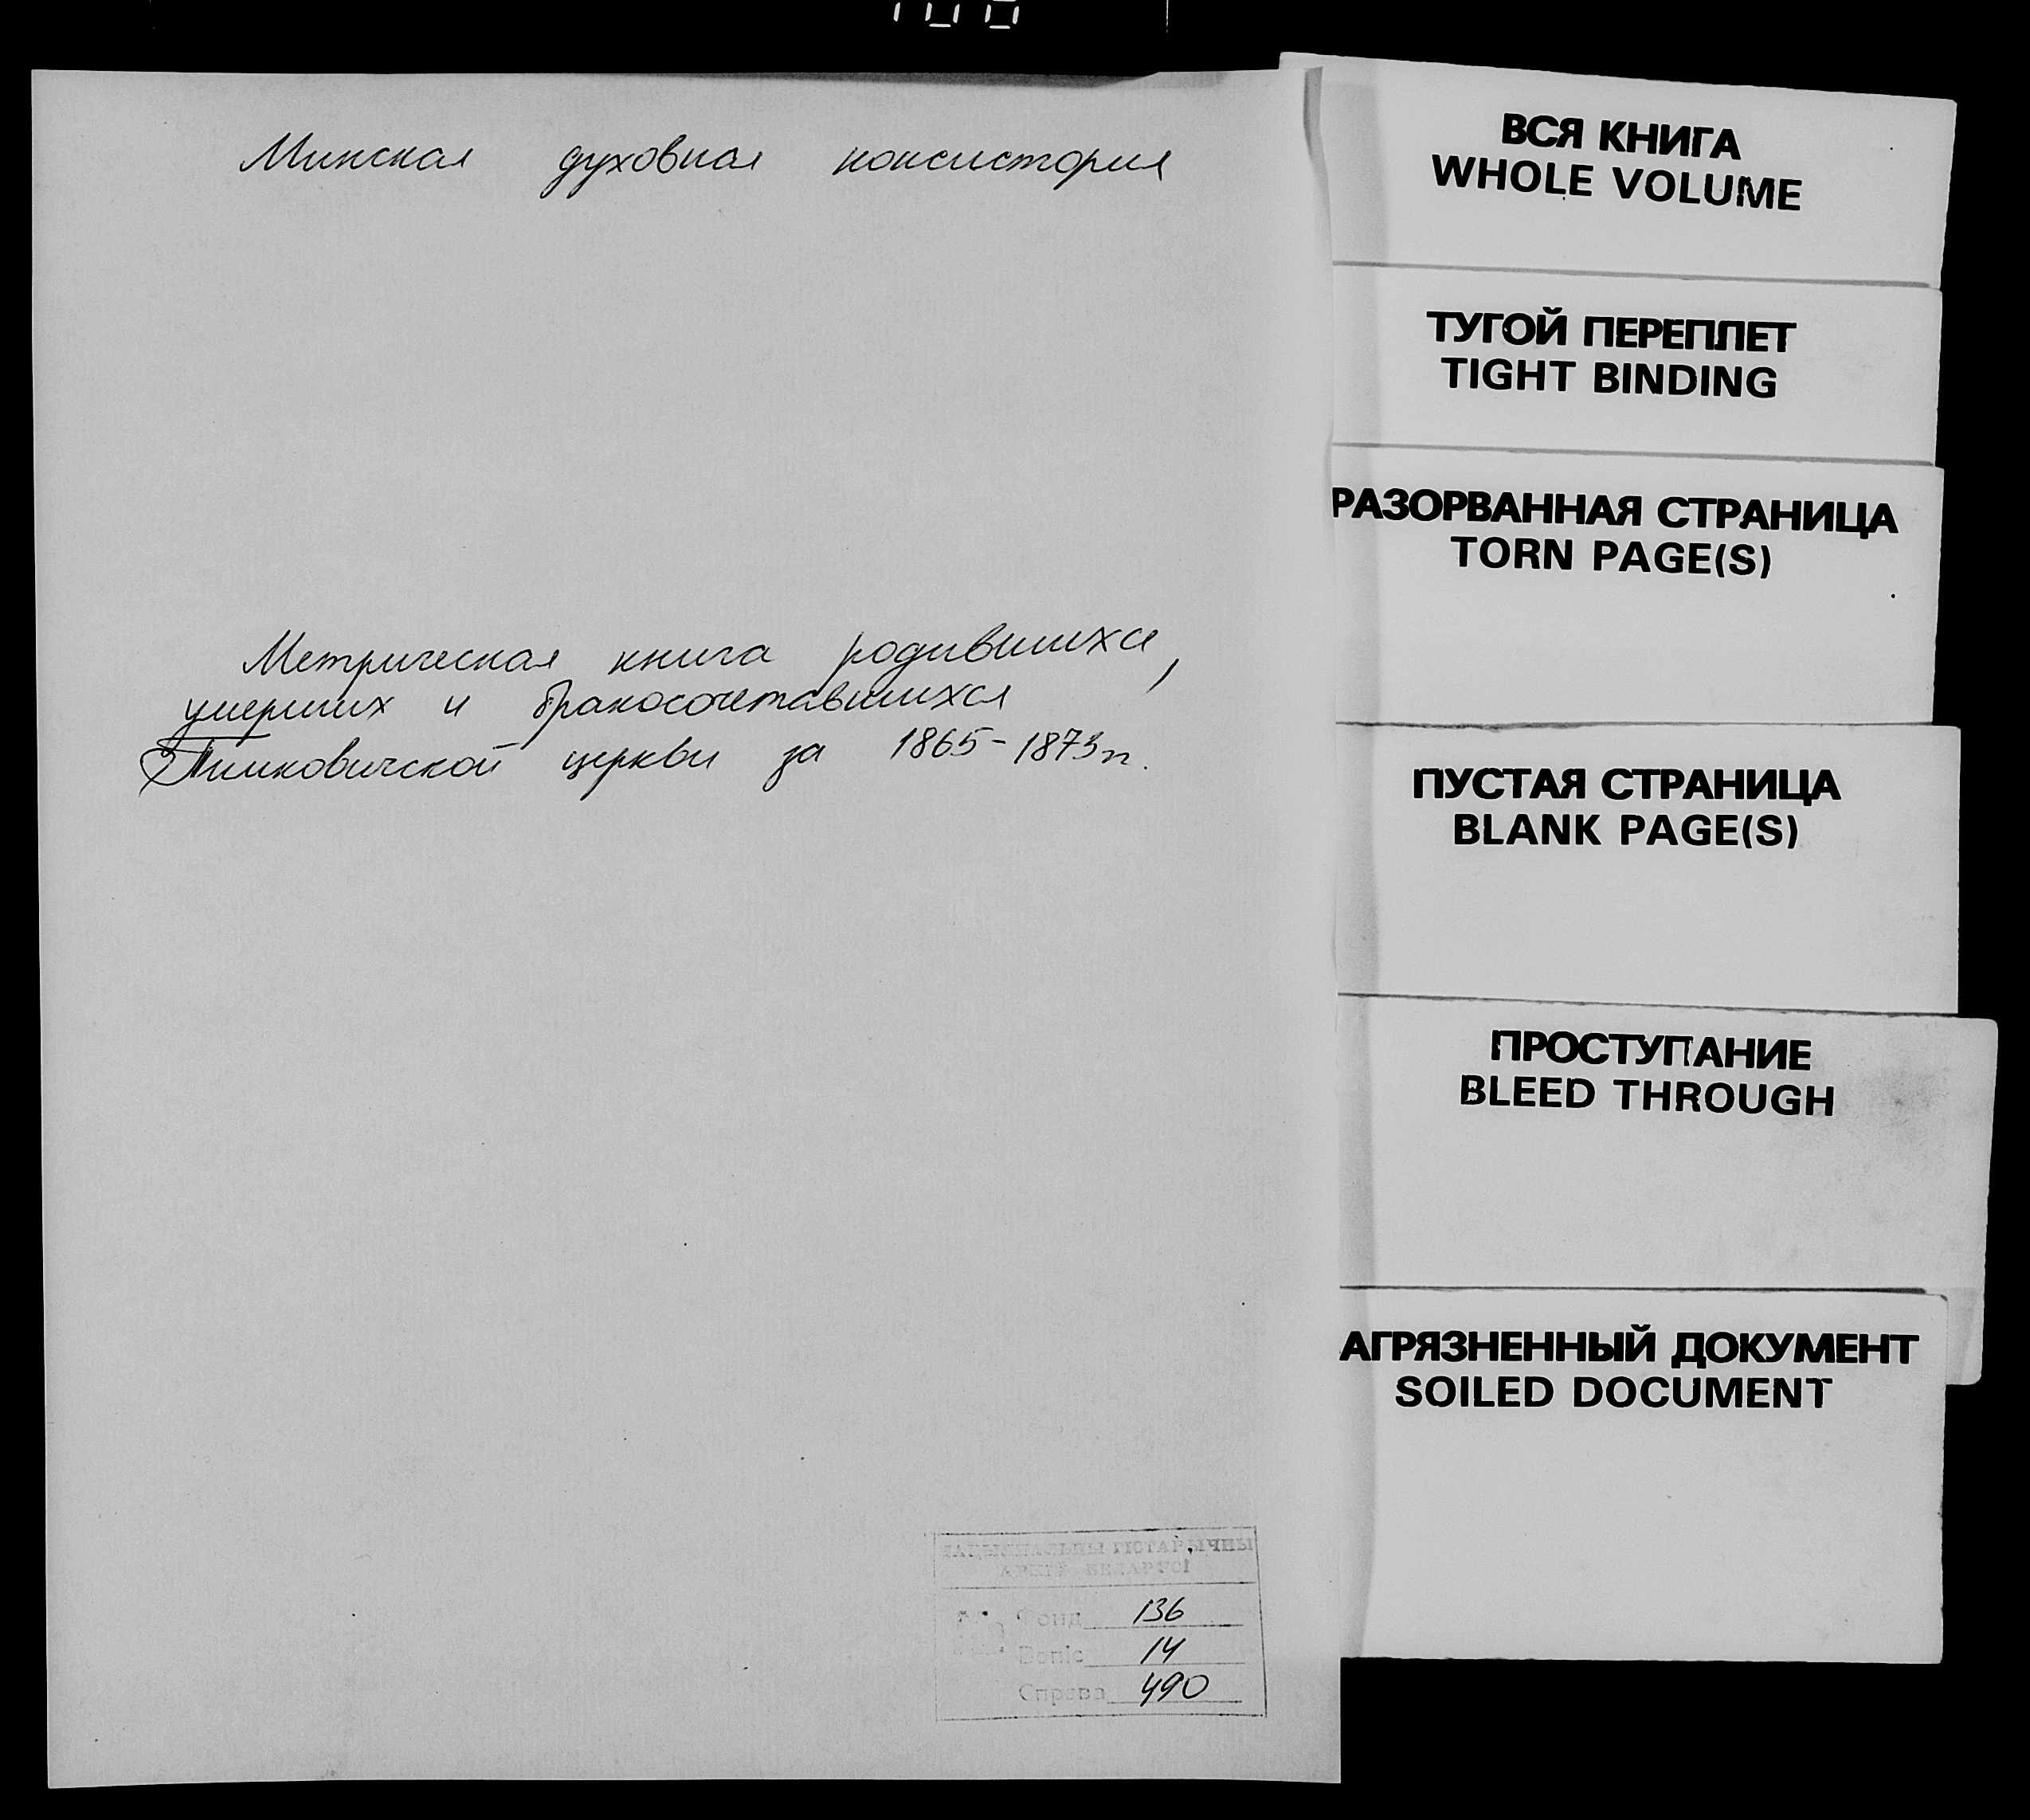 Минская духовная консистория
Метрическая книга родившихся,
умерших и бракосочетавшихся
Тимковичской церкви за 1865-1873гг.
НАЦЫЯНАЛЬНЫ ГІСТАРЫЧНЫ
АРХІЎ БЕЛАРУСІ
Фонд 136
Вопіс 14
Справа 490
ВСЯ КНИГА
WHOLE VOLUME
ТУГОЙ ПЕРЕПЛЕТ
TIGHT BINDING
РАЗОРВАННАЯ СТРАНИЦА
TORN PAGE(S)
ПУСТАЯ СТРАНИЦА
BLANK PAGE(S)
ПРОСТУПАНИЕ
BLEED THROUGH
АГРЯЗНЕННЫЙ ДОКУМЕНТ
SOILED DOCUMENT